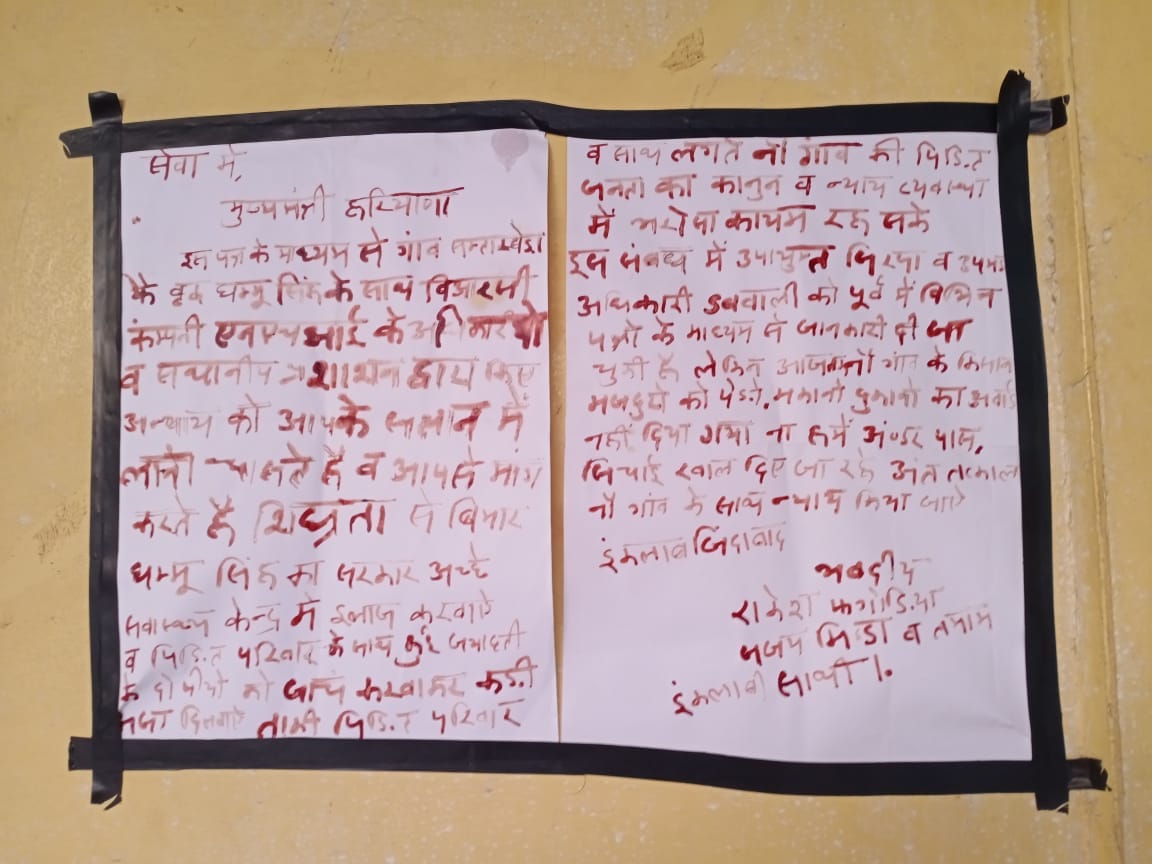 सेवा में,
मुख्यमंत्री हरियाणा
इस पत्र के माध्यम से गांव
के वृद्ध घम्मू सिंह के साथ
कंम्पनी एनएचआई के अधिकारीयो
व सथानीय प्रशासन द्वारा किए
अन्याय को आपके सामान में
लाना चाहते है व आपसे मांग
करते है शिघ्रता से बिमार
घम्मू सिंह का सरकार अच्छे
सवास्थ्य केन्द्र में इलाज करवाऐ
व पिडि़त परिवार के साथ हुई जयादती
के दोषीयो की जांच करवाकर कड़ी
सजा दिलवाऐ ताकी पिडि़त परिवार
व साथ लगते नौ गांव की पिडि़त
जनता का कानुन व न्याय व्यवस्था
में भरोषा कायम रह सके
इस संबंध में उपायुक्त सिरसा व उपमंडल
अधिकारी डबवाली को पूर्व में विभिन
पत्रो के माध्यम से जानकारी दी जा
चुकी है लेकिन आजतक नौ गांव के किसान
मजदुरो को पेड़ो, मकानो दुकानो का अवार्ड
नहीं दिया गया ना हमें अंण्डर पास,
सिंचाई खाल दिए जा रहे अंत तत्काल
नौ गांव के साथ न्याय किया जाऐ
इंकलाब जिंदाबाद
भवदीय
राकेश फगोडि़या
व तमाम
इंकलाबी साथी।